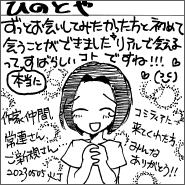 ひのとや
ずっとお会いしてみたかった方と初めて
会うことができました リアルで会えるっ
て、すばらしいコトですね!!!
本当に
(25)
作家仲間
常連さん
ご新規さん…
20230505
コミティアに
来てくれた方、
みんな
ありがとう!!